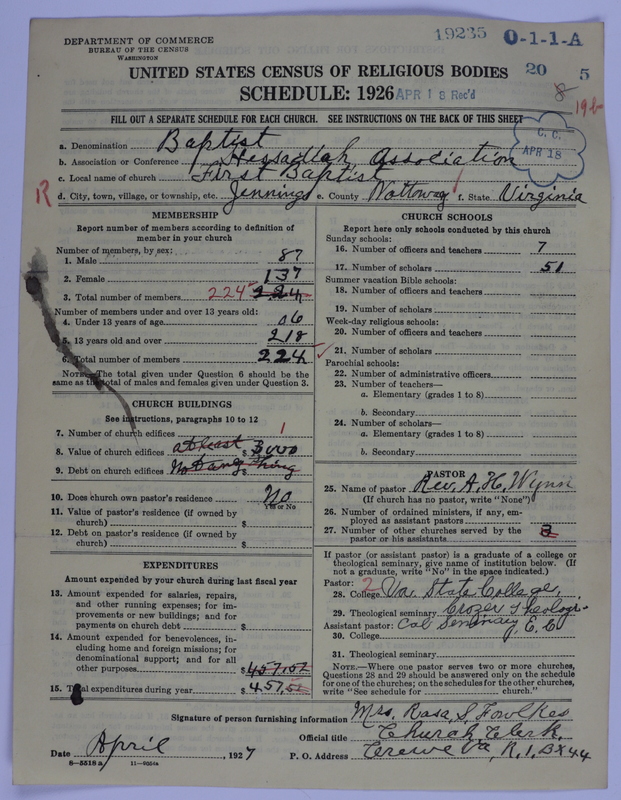 DEPARTMENT OF COMMERCE
BUREAU OF THE CENSUS
WASHINGTON
19235 O-1-1-A
20 5
8
UNITED STATES CENSUS OF RELIGIOUS BODIES
SCHEDULE: 1926 APR 18 Rec'd
FILL OUT A SEPARATE SCHEDULE FOR EACH CHURCH. SEE INSTRUCTIONS ON THE BACK OF THIS SHEET
C. C.
APR 18
a. Denomination Baptist
b. Association or Conference Association
c. Local name of church First Baptist
R d. City, town, village, or township, etc. Jennings e. County Nottoway f. State Virginia
MEMBERSHIP
Report number of members according to definition of
member in your church
Number of members, by sex:
1. Male 87
2. Female 137
3. Total number of members 224 224
Number of members under and over 13 years old:
4. Under 13 years of age 06
5. 13 years old and over 218
6. Total number of members 224
NOTE.—The total given under Question 6 should be the
same as the total of males and females given under Question 3.
CHURCH BUILDINGS
See instructions, paragraphs 10 to 12
7. Number of church edifices 1
8. Value of church edifices at least $ 3000
9. Debt on church edifices
10. Does church own pastor's residence No
Yes or No
11. Value of pastor's residence (if owned by
church) $
12. Debt on pastor's residence (if owned by
church) $
EXPENDITURES
Amount expended by your church during last fiscal year
13. Amount expended for salaries, repairs,
and other running expenses; for im-
provements or new buildings; and for
payments on church debt $
14. Amount expended for benevolences, in-
cluding home and foreign missions; for
denominational support; and for all
other purposes $ 457.52
15. Total expenditures during year $ 457.52
CHURCH SCHOOLS
Report here only schools conducted by this church
Sunday schools:
16. Number of officers and teachers 7
17. Number of scholars 51
Summer vacation Bible schools:
18. Number of officers and teachers
19. Number of scholars
Week-day religious schools:
20. Number of officers and teachers
21. Number of scholars
Parochial schools:
22. Number of administrative officers
23. Number of teachers—
a. Elementary (grades 1 to 8)
b. Secondary
24. Number of scholars—
a. Elementary (grades 1 to 8)
b. Secondary
PASTOR
25. Name of pastor Rev. A. H. Wynn
(If church has no pastor, write "None")
26. Number of ordained ministers, if any, em-
ployed as assistant pastors
27. Number of other churches served by the
pastor or his assistants
If pastor (or assistant pastor) is a graduate of a college or
theological seminary, give name of institution below. (If
not a graduate, write "No" in the space indicated.)
Pastor: 2
28. College Va. State College,
29. Theological seminary Crozer Theologi-
Assistant pastor: cal Seminary,
30. College
31. Theological seminary
NOTE.—Where one pastor serves two or more churches,
Questions 28 and 29 should be answered only on the schedule
for one of the churches; on the schedules for the other churches,
write "See schedule for church."
Signature of person furnishing information Mrs. Rosa S. Fowlkes
Official title Church Clerk,
Date April, 1927 P. O. Address Crewe Va, R. 1, Bx 44
8—5518 a 11—9204a